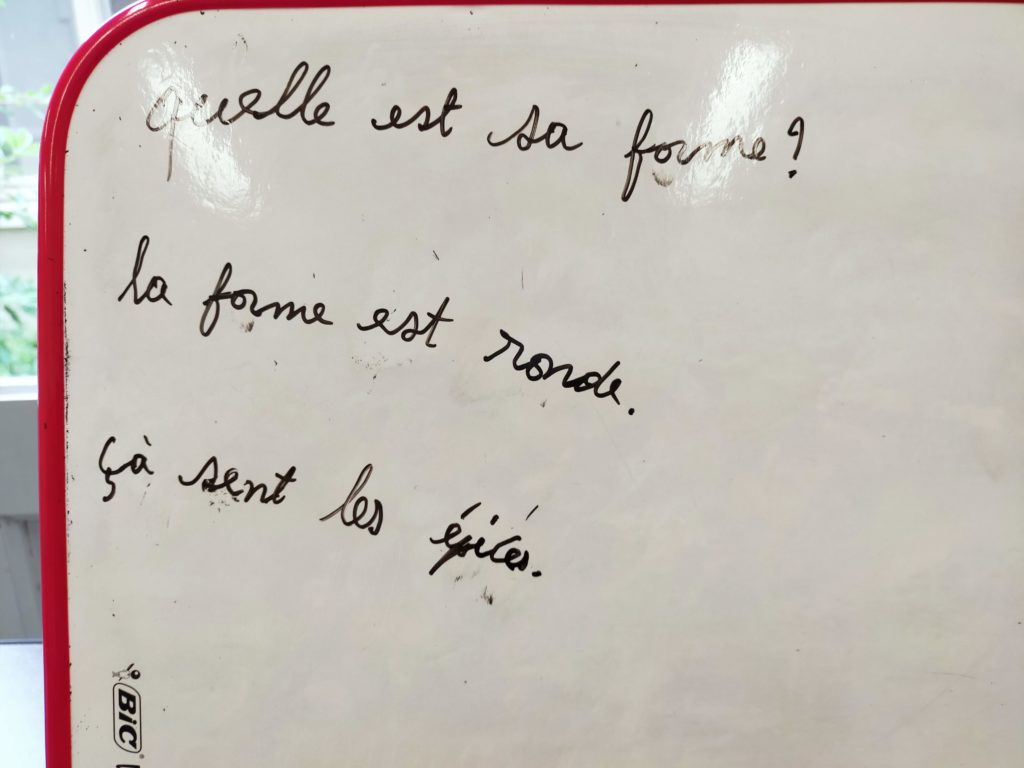 quelle est sa forme ?
la forme est ronde.
çà sent les épicés.
BiC